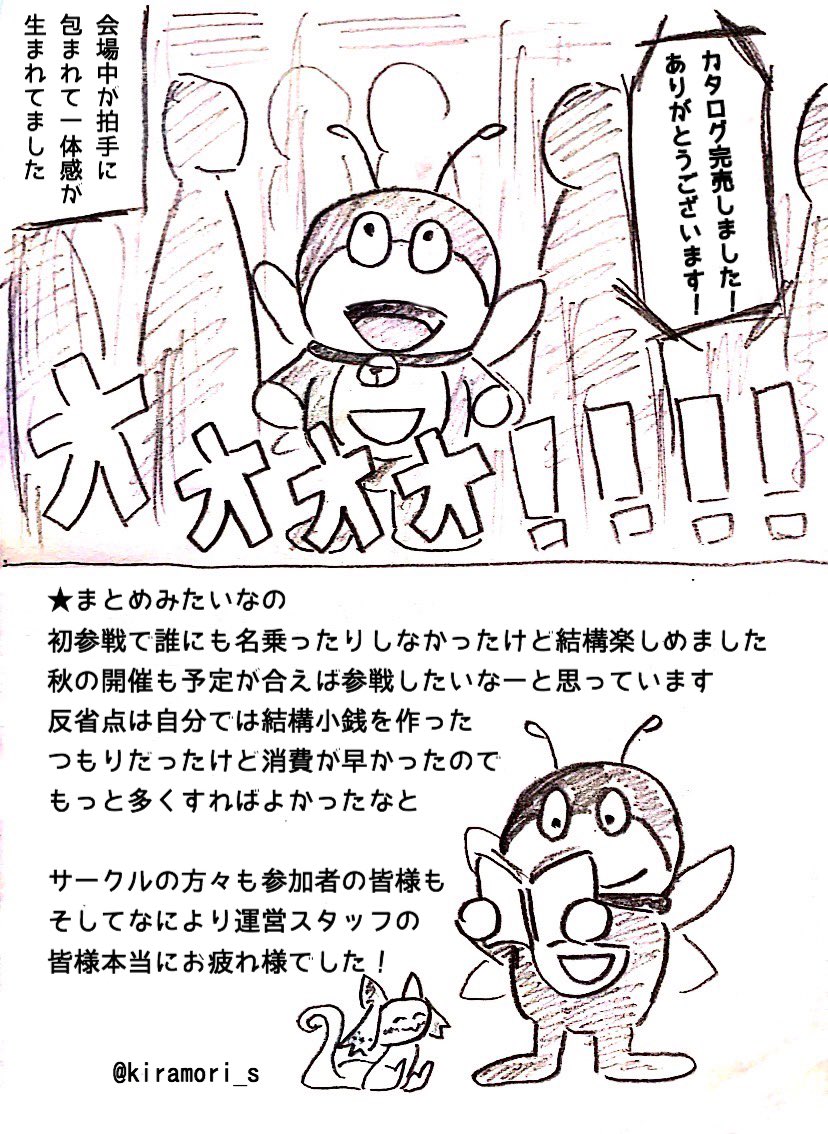 カタログ完売しました！
ありがとうございます！
会場中が拍手に
包まれて一体感が
生まれてました
オオオオ！！！！
★まとめみたいなの
初参戦で誰にも名乗ったりしなかったけど結構楽しめました
秋の開催も予定が合えば参戦したいなーと思っています
反省点は自分では結構小銭を作った
つもりだったけど消費が早かったので
もっと多くすればよかったなと
サークルの方々も参加者の皆様も
そしてなにより運営スタッフの
皆様本当にお疲れ様でした！
@kiramori_s